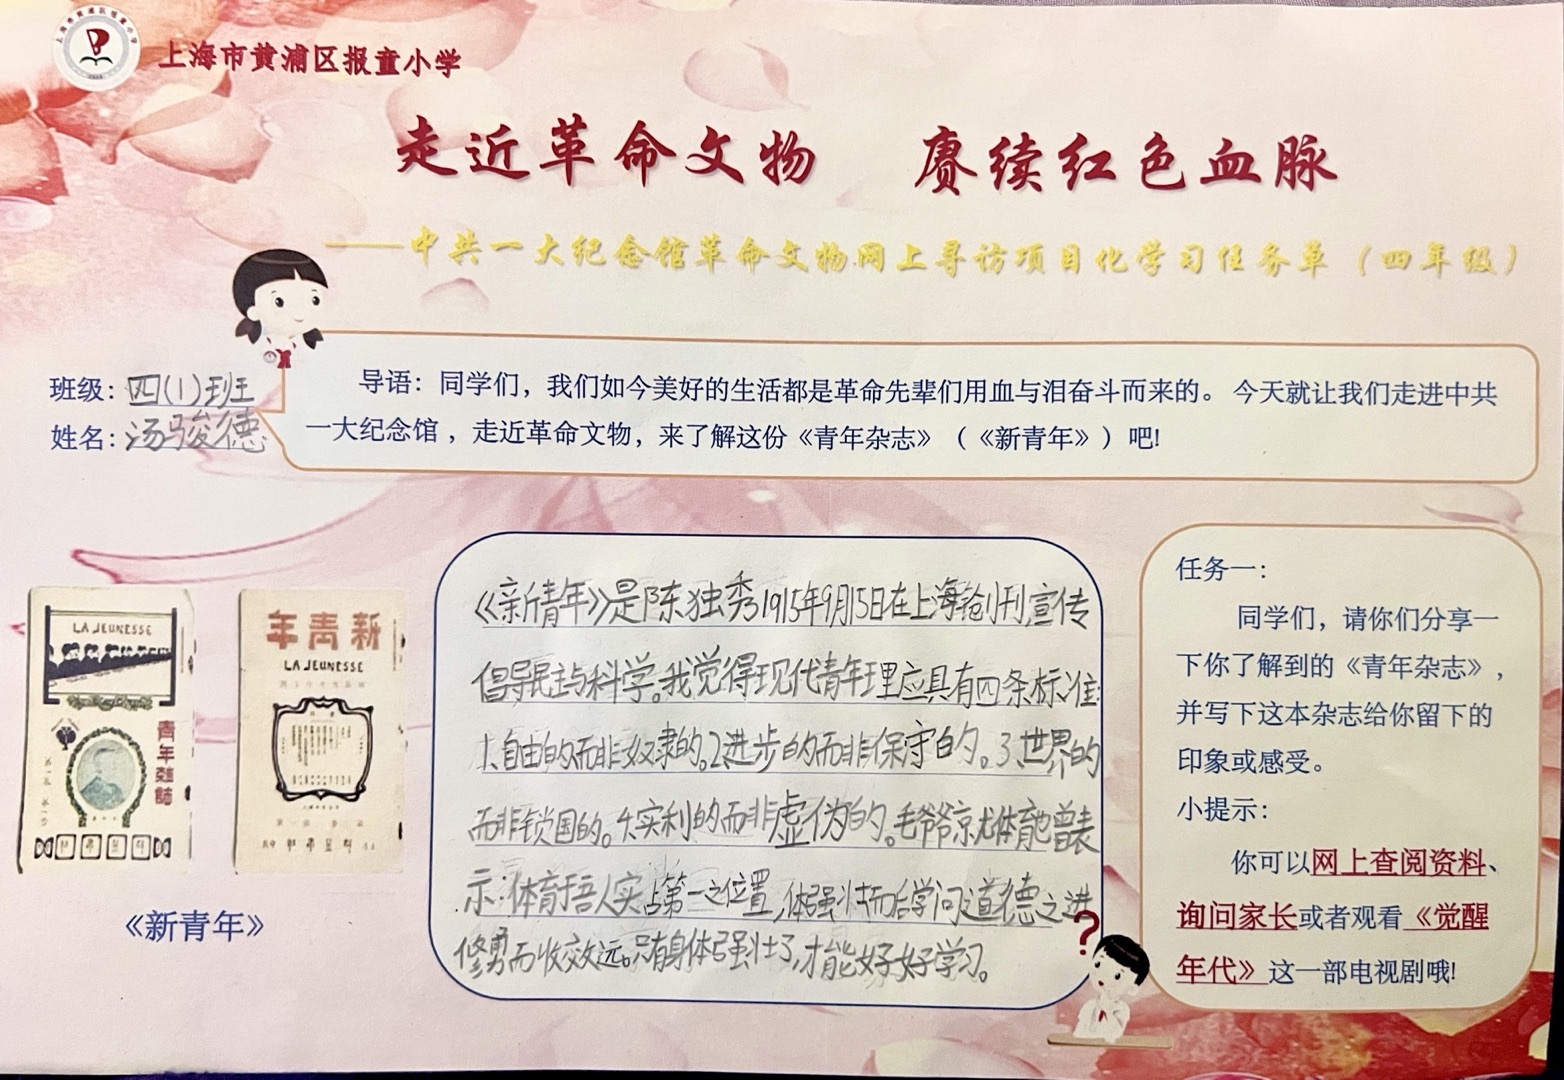 上海市黄浦区报童小学
走近革命文物 赓续红色血脉
——中共一大纪念馆革命文物网上寻访项目化学习任务单（四年级）
班级：四(1)班
姓名：汤骏德
导语：同学们，我们如今美好的生活都是革命先辈们用血与泪奋斗而来的。今天就让我们走进中共
一大纪念馆，走近革命文物，来了解这份《青年杂志》（《新青年》）吧!
LA JEUNESSE
青年雜誌
新青年
LA JEUNESSE
《新青年》
《新青年》是陈独秀1915年9月15日在上海创刊,宣传
倡导民主与科学。我觉得现代青年理应具有四条标准:
1.自由的而非奴隶的。2.进步的而非保守的。3.世界的
而非锁国的。4.实利的而非虚伪的。毛爷爷就体育也曾表
示:体育于吾人实占第一之位置,体强壮而后学问道德之进
修勇而收效远。只有身体强壮了,才能好好学习。
?
任务一：
同学们，请你们分享一
下你了解到的《青年杂志》，
并写下这本杂志给你留下的
印象或感受。
小提示：
你可以网上查阅资料、
询问家长或者观看《觉醒
年代》这一部电视剧哦!